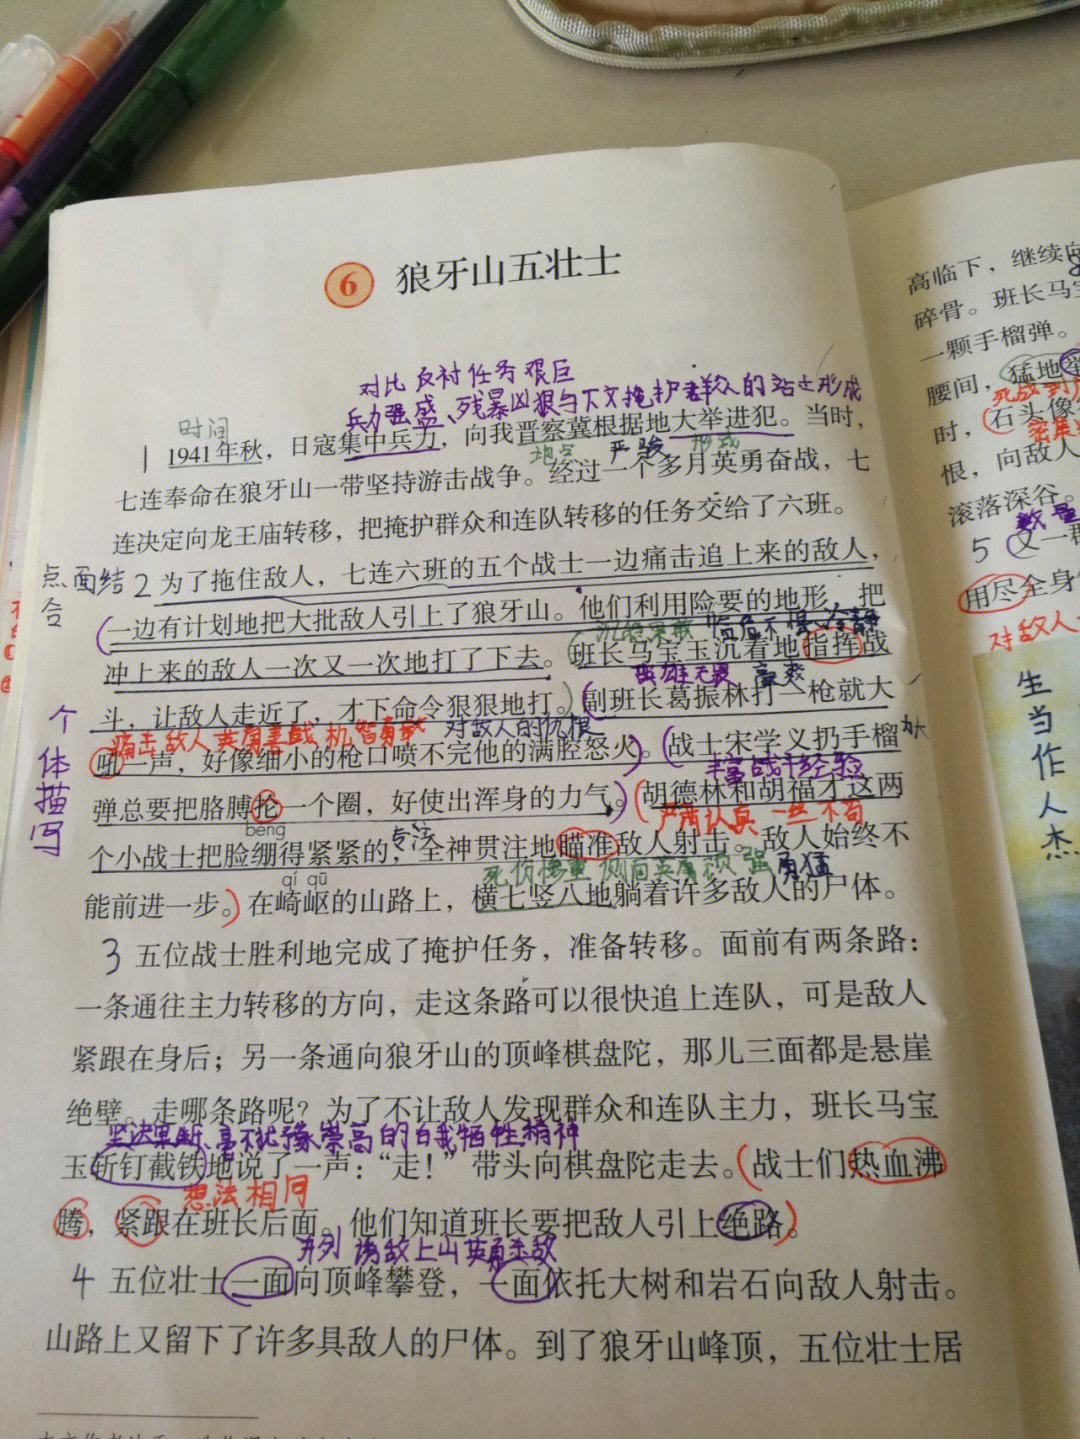 6 狼牙山五壮士
对比 反衬 任务 艰巨
兵力强盛、残暴凶狠与下文掩护群众的站士形成
时间
1 1941年秋，日寇集中兵力，向我晋察冀根据地大举进犯。当时，
地点 严骏 形式
七连奉命在狼牙山一带坚持游击战争。经过一个多月英勇奋战，七
连决定向龙王庙转移，把掩护群众和连队转移的任务交给了六班。
点面结合
2 为了拖住敌人，七连六班的五个战士一边痛击追上来的敌人，
一边有计划地把大批敌人引上了狼牙山。他们利用险要的地形，把
沉稳果敢 临危不惧 冷静
冲上来的敌人一次又一次地打了下去。班长马宝玉沉着地指挥战
英雄无畏
斗，让敌人走近了，才下命令狠狠地打。副班长葛振林打一枪就大
个体描写
痛击敌人 英勇善战 机智勇敢 对敌人的仇恨
吼一声，好像细小的枪口喷不完他的满腔怒火。战士宋学义扔手榴
丰富战斗经验
弹总要把胳膊抡一个圈，好使出浑身的力气。胡德林和胡福才这两
严肃认真 一丝不苟
bēng
个小战士把脸绷得紧紧的，全神贯注地瞄准敌人射击。敌人始终不
专注
死伤惨重 侧面英勇顽强 勇猛
qí qū
能前进一步。在崎岖的山路上，横七竖八地躺着许多敌人的尸体。
3 五位战士胜利地完成了掩护任务，准备转移。面前有两条路：
一条通往主力转移的方向，走这条路可以很快追上连队，可是敌人
紧跟在身后；另一条通向狼牙山的顶峰棋盘陀，那儿三面都是悬崖
绝壁。走哪条路呢？为了不让敌人发现群众和连队主力，班长马宝
坚决果断、毫不犹豫崇高的自我牺牲精神
玉斩钉截铁地说了一声：“走！”带头向棋盘陀走去。战士们热血沸
想法相同
腾，紧跟在班长后面。他们知道班长要把敌人引上绝路。
并列 诱敌上山英勇杀敌
4 五位壮士一面向顶峰攀登，一面依托大树和岩石向敌人射击。
山路上又留下了许多具敌人的尸体。到了狼牙山峰顶，五位壮士居
高临下，继续向
碎骨。班长马宝
一颗手榴弹。
腰间，猛地举
时，石头像
恨，向敌人
滚落深谷。
数量
5 又一群
用尽全身
对敌人
生当作人杰